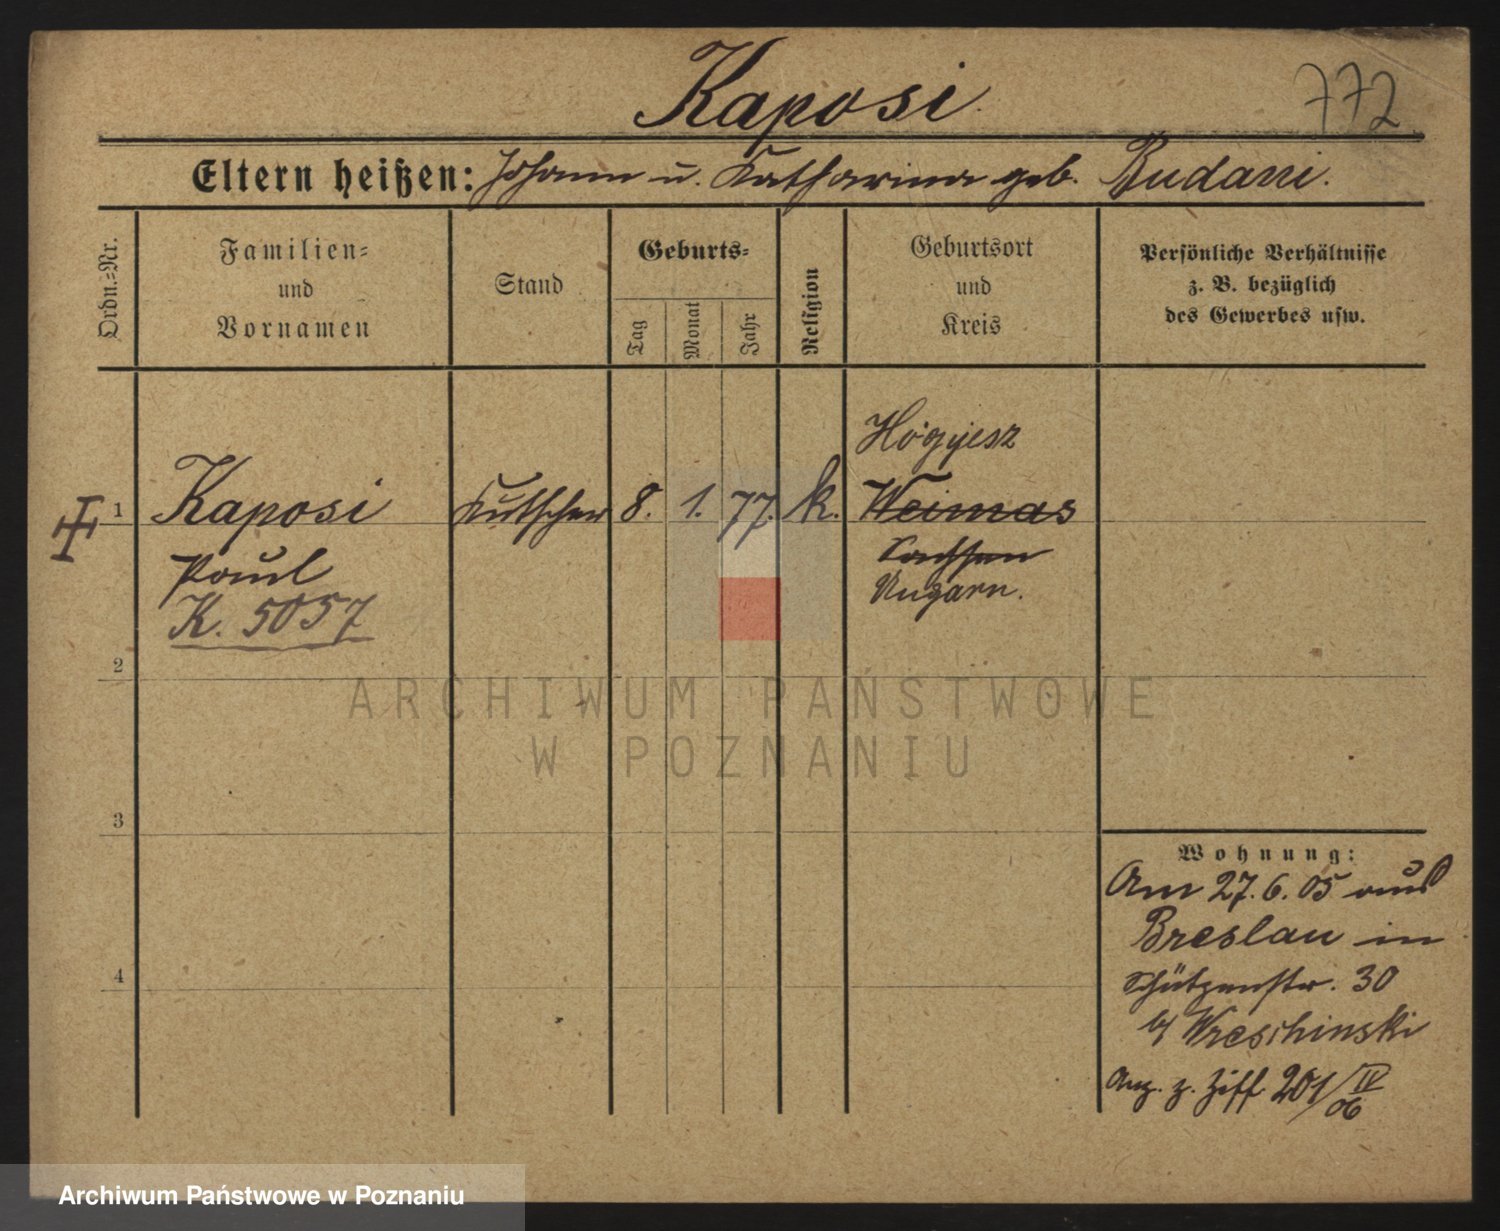 Kaposi
772
Eltern heißen: Johann u. Katharina geb. Budani.
Ordn.-Nr.
Familien-
und
Vornamen
Stand
Geburts-
Tag
Monat
Jahr
Religion
Geburtsort
und
Kreis
Persönliche Verhältnisse
z. B. bezüglich
des Gewerbes usw.
Högyesz
1 Kaposi Kutscher 8. 1. 77. k. Weimas
Paul Sachsen
K. 5057 Ungarn.
2
ARCHIWUM PAŃSTWOWE
W POZNANIU
3
Wohnung:
Am 27.6.05 aus
Breslau in
4
Schützenstr. 30
b/ Wreschinski
Anz. z. Ziff 201/IV 06
Archiwum Państwowe w Poznaniu